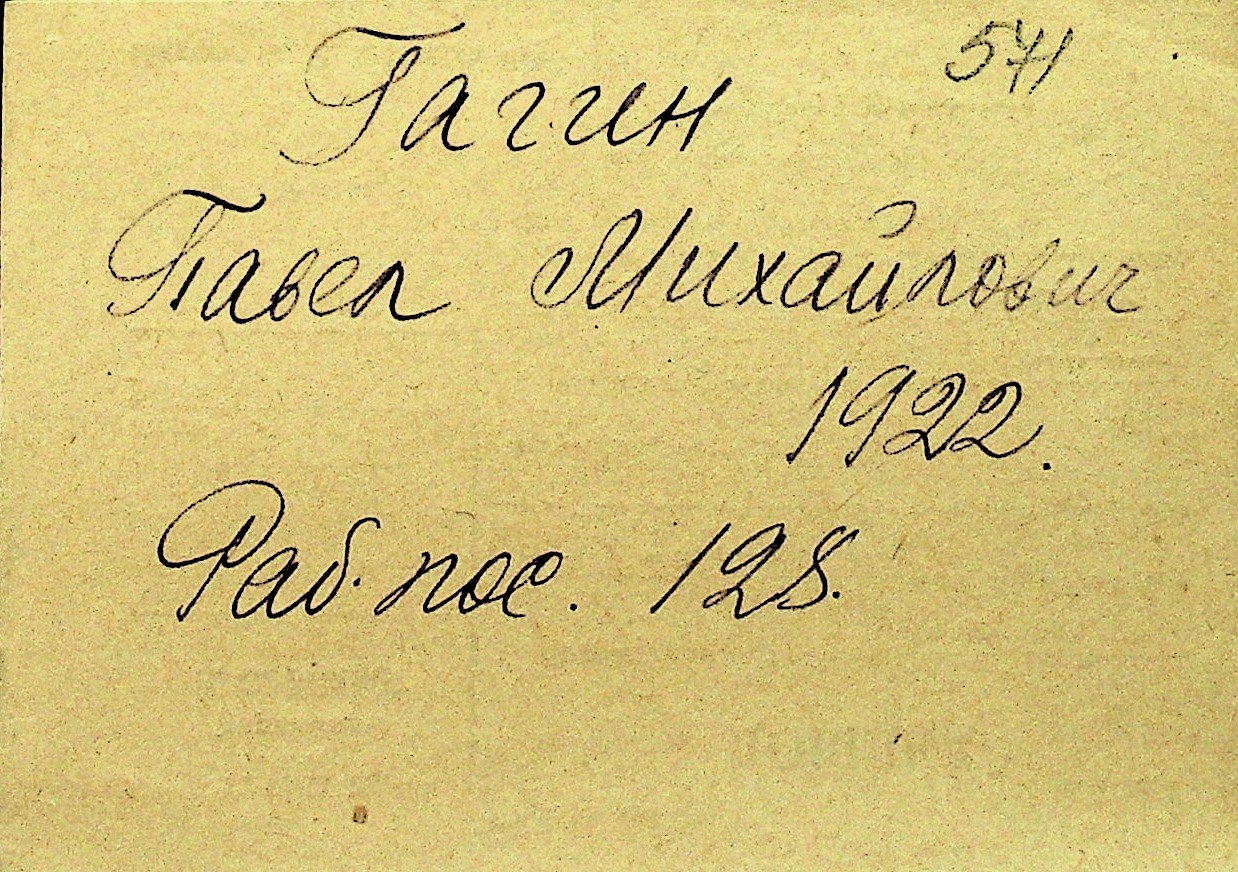 571
Гагин
Павел Михайлович
1922.
Раб. пос. 128.